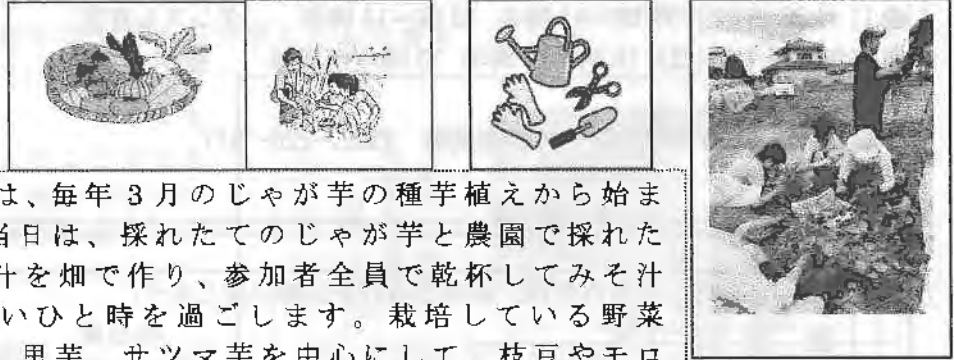 は、毎年3月のじゃが芋の種芋植えから始ま
当日は、採れたてのじゃが芋と農園で採れた
汁を畑で作り、参加者全員で乾杯してみそ汁
いひと時を過ごします。栽培している野菜
里芋、サツマ芋を中心にして、枝豆やモロ